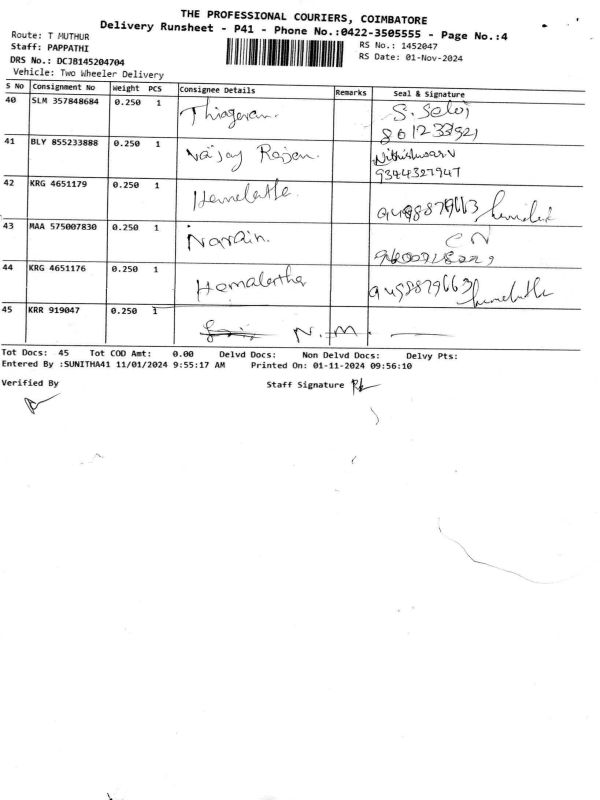 THE PROFESSIONAL COURIERS, COIMBATORE
Delivery Runsheet - P41 - Phone No.:0422-3505555 - Page No.:4
Route: T MUTHUR
Staff: PAPPATHI
RS No.: 1452047
DRS No.: DCJ8145204704
RS Date: 01-Nov-2024
Vehicle: Two Wheeler Delivery
S No Consignment No Weight PCS Consignee Details Remarks Seal & Signature
40 SLM 357848684 0.250 1 Thiagaran. S. Selvi
861233921
41 BLY 855233888 0.250 1 Vaijay Rajan. Nithishwar V
9344327947
42 KRG 4651179 0.250 1 Hemelatha
43 MAA 575007830 0.250 1 Narain. C N
44 KRG 4651176 0.250 1 Hemalatha
45 KRR 919047 0.250 1 N.M.
Tot Docs: 45 Tot COD Amt: 0.00 Delvd Docs: Non Delvd Docs: Delvy Pts:
Entered By :SUNITHA41 11/01/2024 9:55:17 AM Printed On: 01-11-2024 09:56:10
Verified By Staff Signature